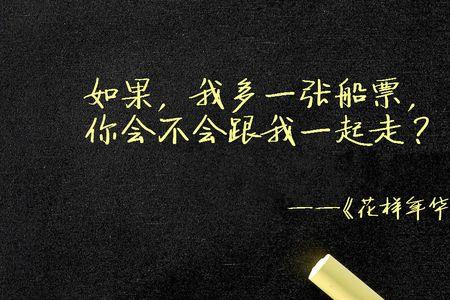 如果，我多一张船票，
你会不会跟我一起走？
——《花样年华